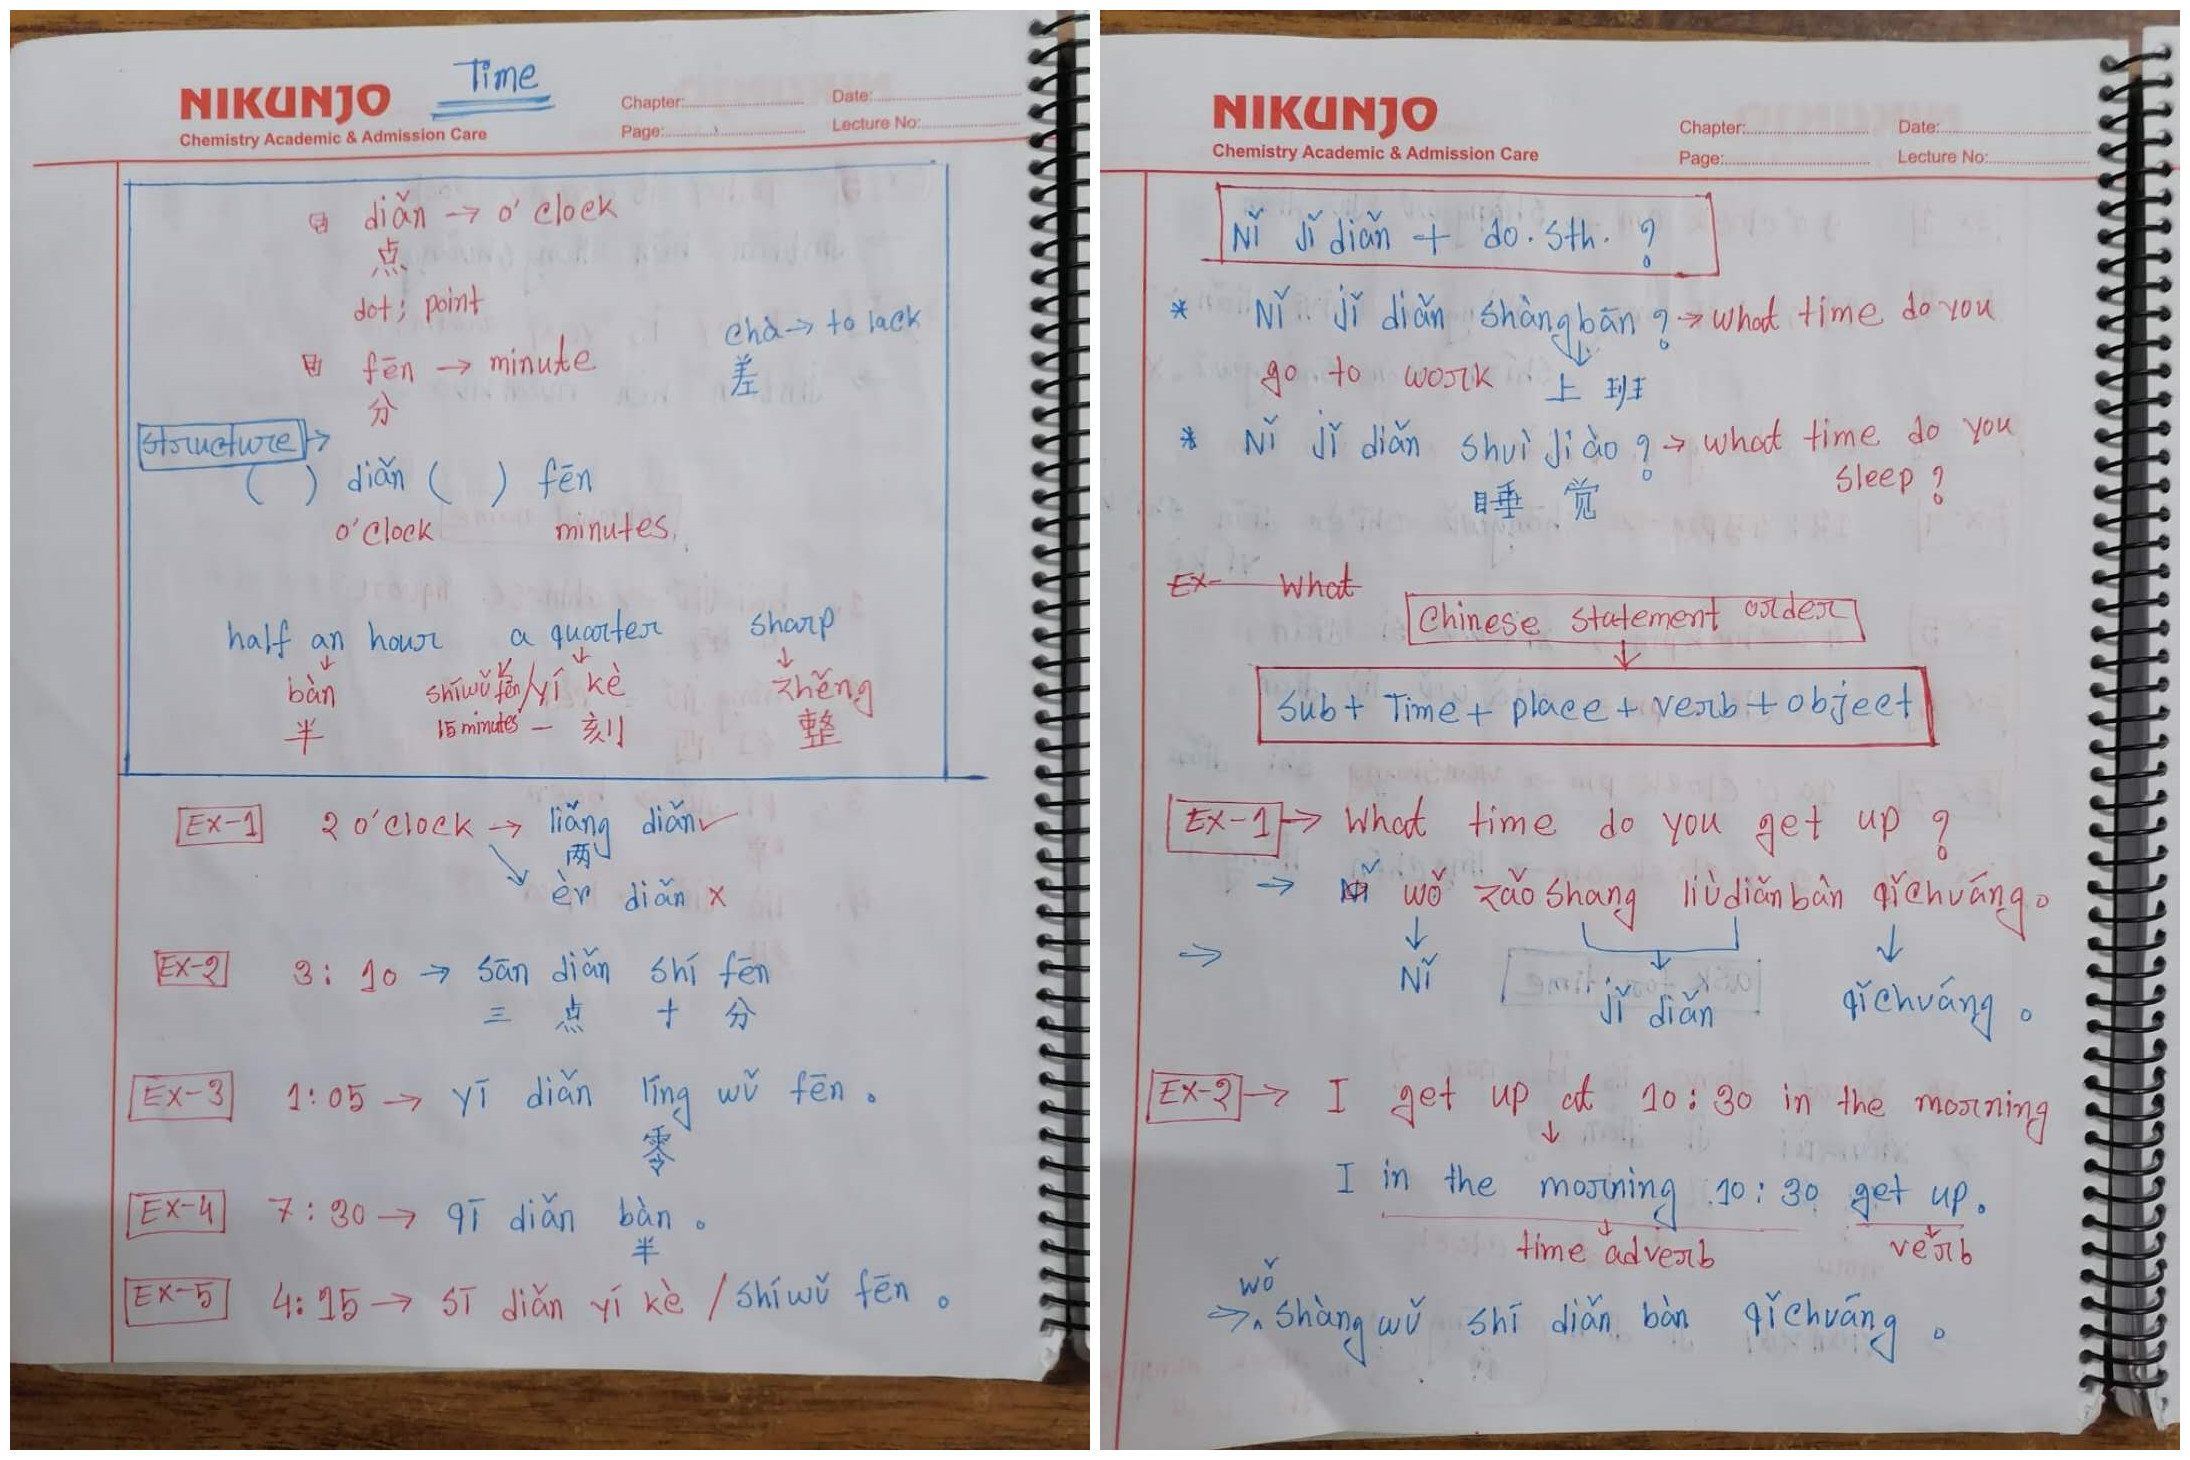 Time
NIKUNJO
Chemistry Academic & Admission Care
Chapter: Date:
Page: Lecture No:
diǎn → o'clock
点
dot; point
chà → to lack
差
fēn → minute
分
Structure →
( ) diǎn ( ) fēn
o'clock minutes
half an hour a quarter sharp
↓ ↓ ↓
bàn shíwǔ fēn/yí kè zhěng
半 15 minutes 一 刻 整
Ex-1 2 o'clock → liǎng diǎn ✓
两
èr diǎn x
Ex-2 3:10 → sān diǎn shí fēn
三 点 十 分
Ex-3 1:05 → yī diǎn líng wǔ fēn 。
零
Ex-4 7:30 → qī diǎn bàn 。
半
Ex-5 4:15 → sī diǎn yí kè / shíwǔ fēn 。
NIKUNJO
Chemistry Academic & Admission Care
Chapter: Date:
Page: Lecture No:
Nǐ jǐ diǎn + do. sth. ?
* Nǐ jǐ diǎn shàngbān ? → what time do you
go to work 上 班
* Nǐ jǐ diǎn shuì jiào ? → what time do you
sleep ?
睡 觉
Ex- What
Chinese statement order
↓
Sub + Time + place + verb + object
Ex-1 → What time do you get up ?
⇒ Nǐ wǒ zǎoshang liùdiǎnbàn qǐchuáng。
⇒ Nǐ jǐ diǎn qǐchuáng 。
Ex-2 → I get up at 10:30 in the morning
↓
I in the morning 10:30 get up.
time adverb verb
wǒ
⇒ ^ shàngwǔ shī diǎn bàn qǐchuáng 。